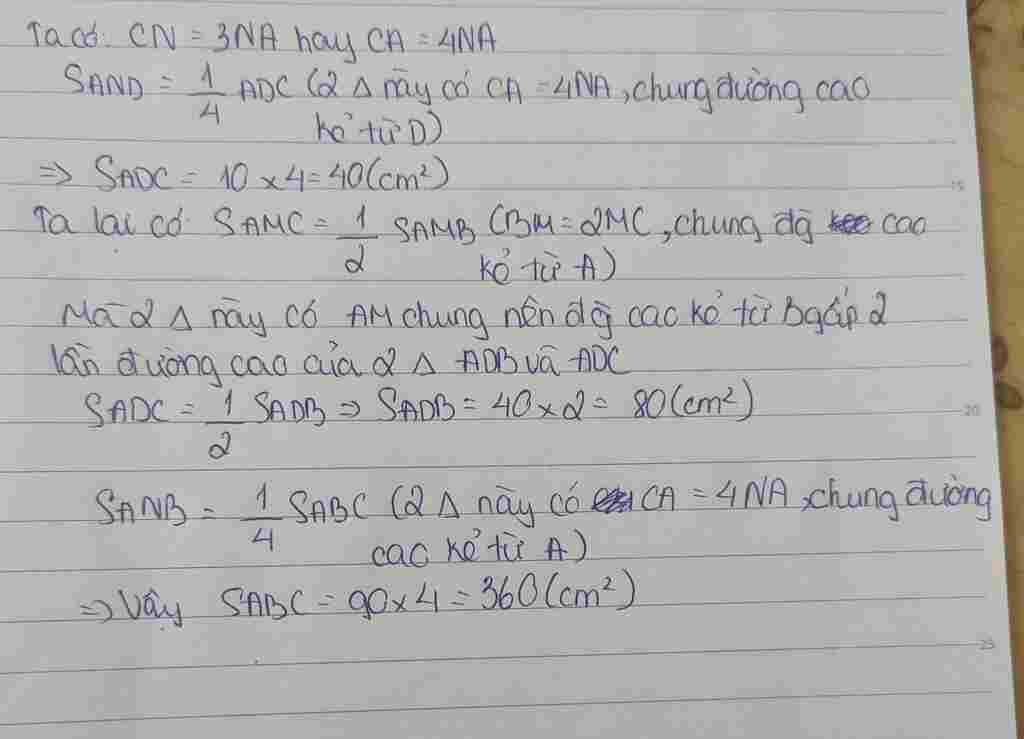 Ta có CN = 3NA hay CA = 4NA
SAND = 1/4 ADC (2 Δ này có CA = 4NA, chung đường cao
kẻ từ D)
=> SADC = 10 x 4 = 40 (cm²)
15
Ta lại có SAMC = 1/2 SAMB (BM = 2MC, chung đg cao
kẻ từ A)
Mà 2 Δ này có AM chung nên đg cao kẻ từ B gấp 2
lần đường cao của 2 Δ ADB và ADC
SADC = 1/2 SADB => SADB = 40 x 2 = 80 (cm²)
20
SANB = 1/4 SABC (2 Δ này có CA = 4NA, chung đường
cao kẻ từ A)
=> Vậy SABC = 90 x 4 = 360 (cm²)
25